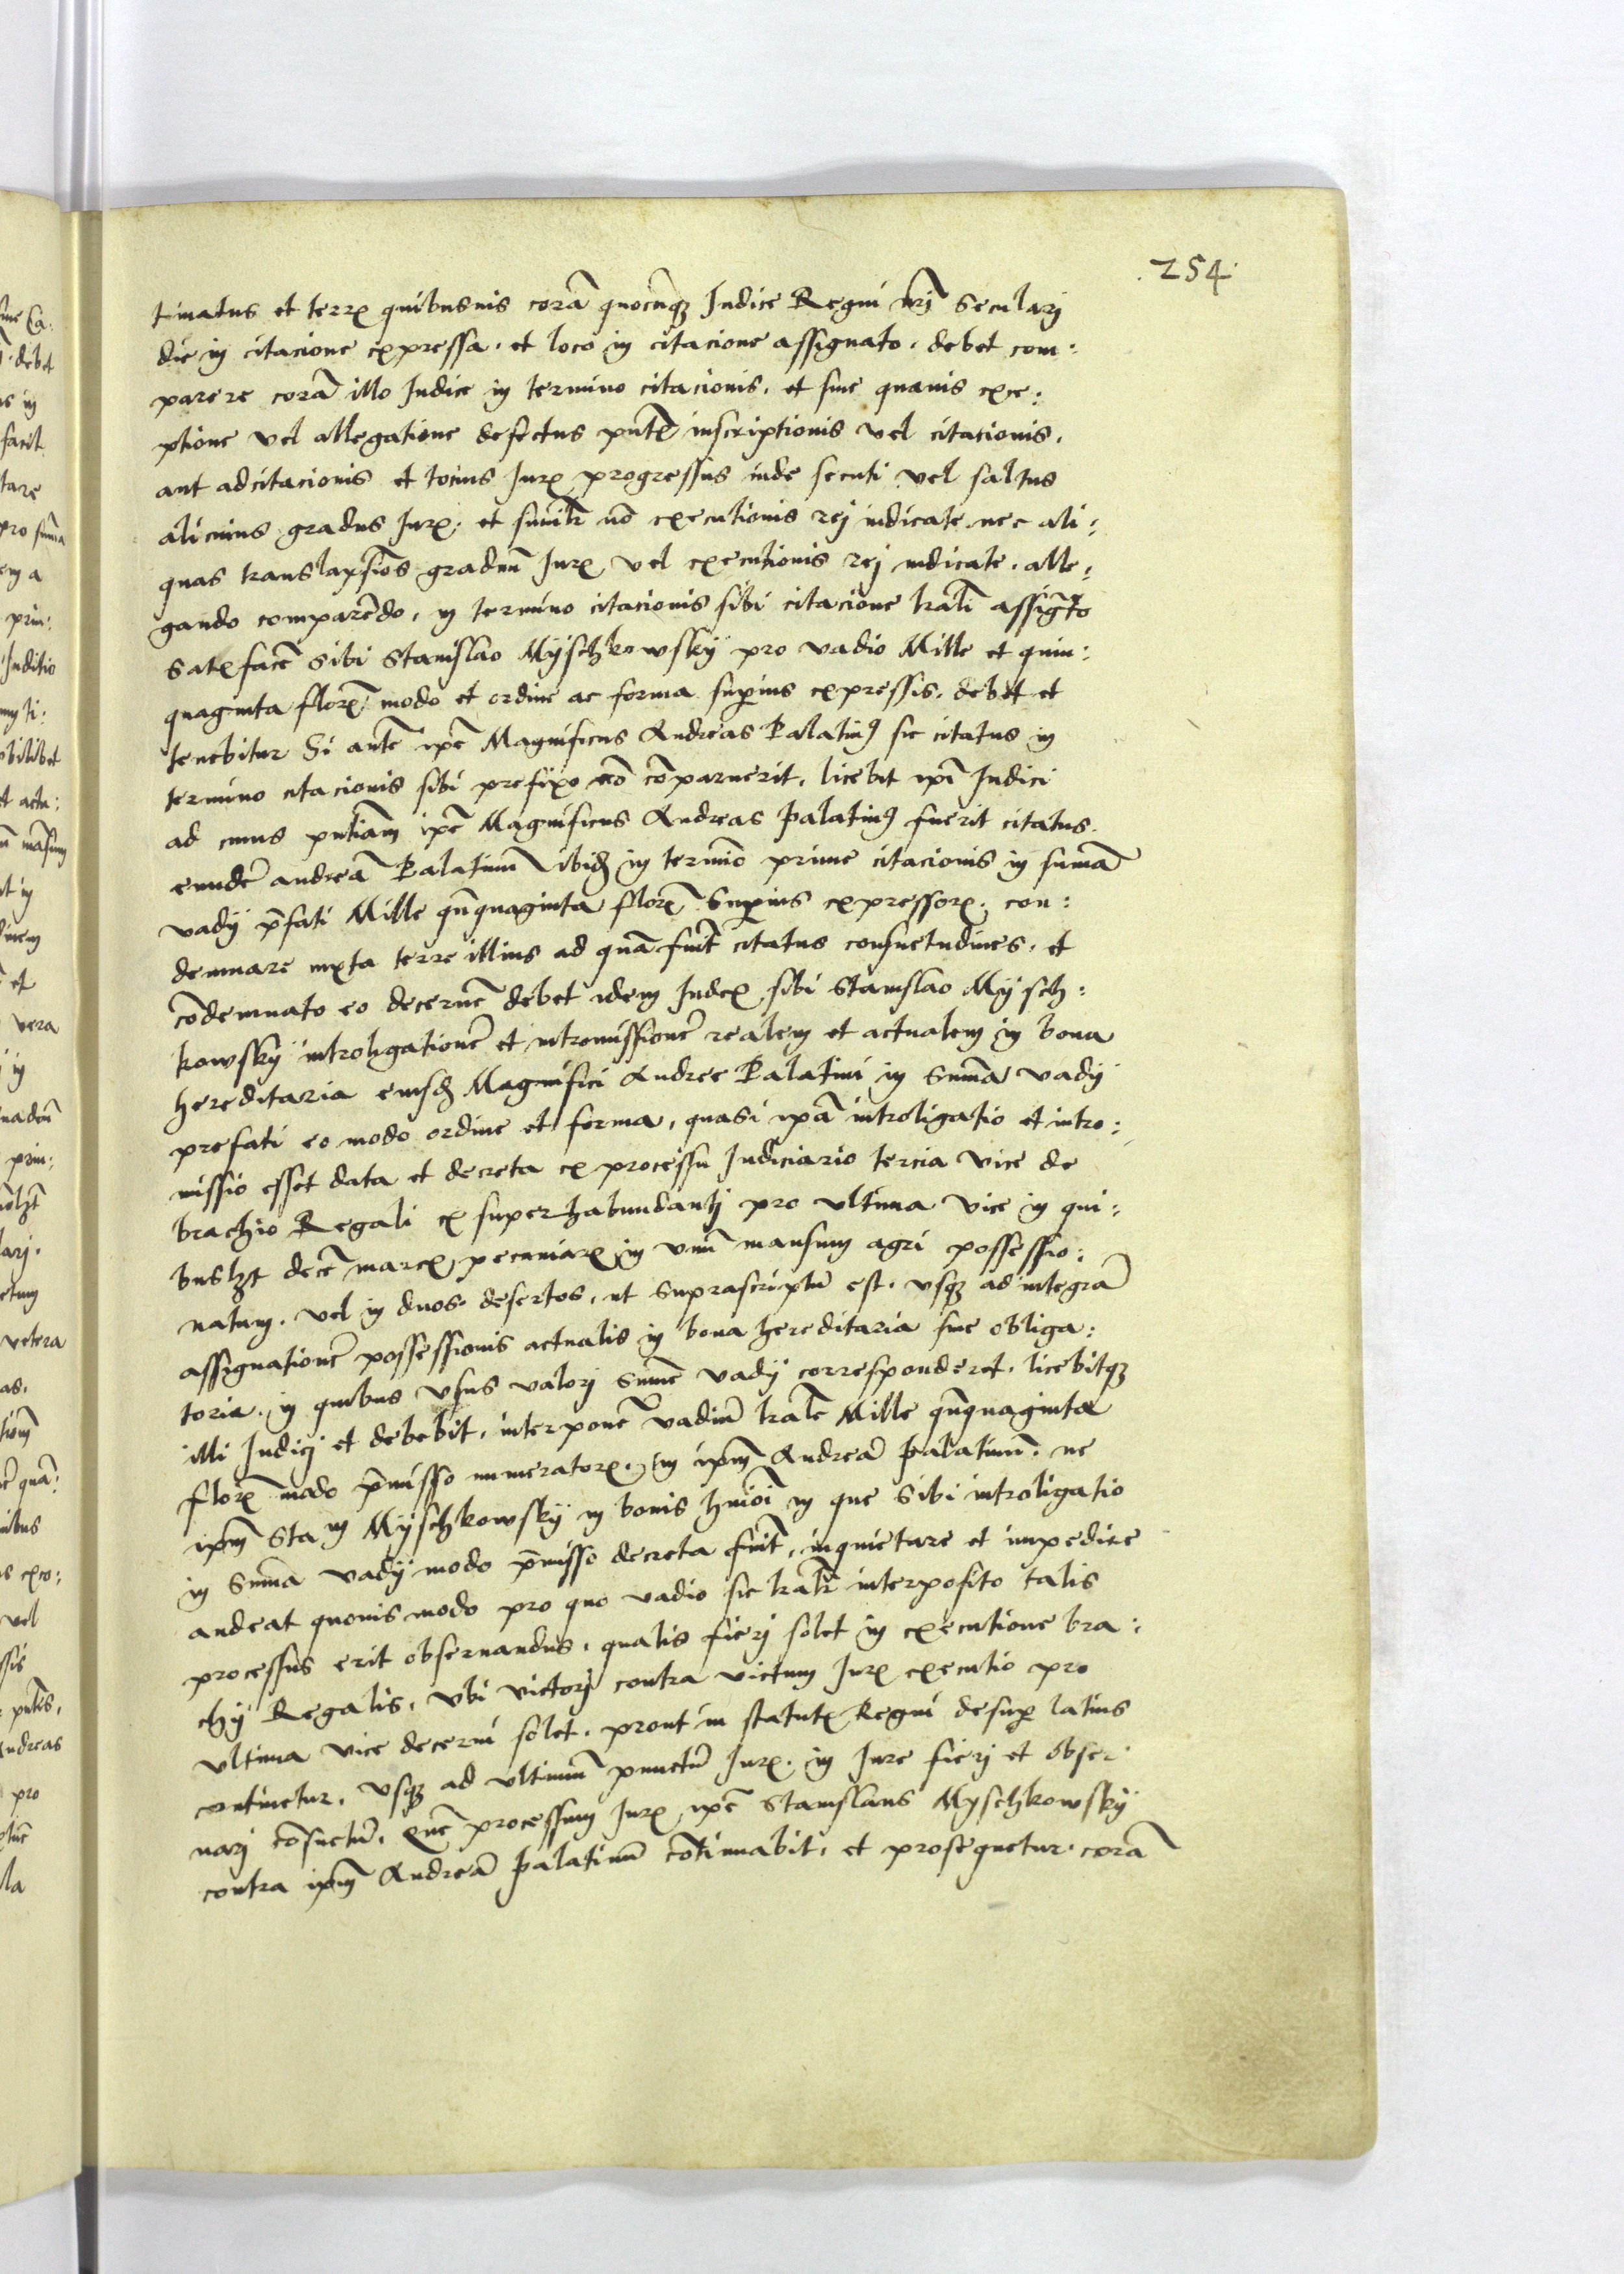 254
tinatus et terrx quibusuis corã quocũqȝ Iudice Regni nrĩ Seculari
die in citacione expressa. et loco in citacione assignato. debet com:
parere corã illo Iudice in termino citacionis. et sine quauis exce:
ptione vel allegatione defectus pntẽ inscriptionis vel citacionis.
aut adcitacionis et tocius Iurx progressus inde secuti vel saltus
alicuius gradus Iurx. et simiłr nõ executionis rei iudicate. nec ali:
quas translapsiõs graduũ Iurx vel executionis rei iudicate. alle:
gando comparẽdo. in termino citacionis sibi citacione trałi assigñto
Satxfacẽ Sibi Stanislao Myschkowsky pro vadio Mille et quin:
quaginta florx modo et ordine ac forma superius expressis. debet et
tenebitur Si autẽ ipẽ Magnificus Andreas Palatin9 sic citatus in
termino citacionis sibi prefixo nõ cõparuerit. licebit ipĩ Iudici
ad cuius pntiam ipẽ Magnificus Andreas Palatin9 fuerit citatus.
eundẽ andreã Palatinũ ibidẽ in terminõ prime citacionis in sumã
vadij p̃fati Mille qñquaginta florx Superius expressorx. con:
demnare iuxta terre illius ad quã fuit citatus consuetudines. et
cõdemnato eo decernẽ debet idem Iudex sibi Stanislao Mysch:
kowsky introligationẽ et intromissionẽ realem et actualem in bona
hereditaria eiusdẽ Magnifici Andree Palatini in Summã vadij
prefati eo modo ordine et forma, quasi ipã introligatio et intro:
missio esset data et decreta ex processu Iudiciario tercia vice de
brachio Regali ex superhabundantj pro vltima vice in qui:
buslȝt decẽ marcx pecuniarx in vnũ mansum agri possessio:
natum. vel in duos desertos. ut Suprascriptũ est. vsqȝ ad integrã
assignationẽ possessionis actualis in bona hereditaria siue obliga:
toria. in quibus vsus valorj Summe vadij corresponderet. licebitqȝ
illi Iudicj et debebit. interponẽ vadiũ trałe Mille qñquaginta
florx modo p̃misso numeratorx. in ipm Andreã Palatinũ. ne
ipm Sta m Myschkowsky in bonis hmõi in que Sibi introligatio
in Summã vadij modo p̃misso decreta fuit, inquietare et impedire
audeat quouis modo pro quo vadio sic trałr interposito talis
processus erit obseruandus. qualis fierj solet in executione bra:
chij Regalis. vbi victorj contra victum Iurx executio pro
vltima vice decerni solet. prout in statutx Regni desuper latius
continetur. vsqȝ ad vltimum punctũ Iurx. in Iure fierj et obser
uarj cõsuetũ. Quẽ processum Iurx ipẽ Stanislaus Myschkowsky
contra ipm Andreã Palatinũ cõtinuabit. et prosequetur. corã